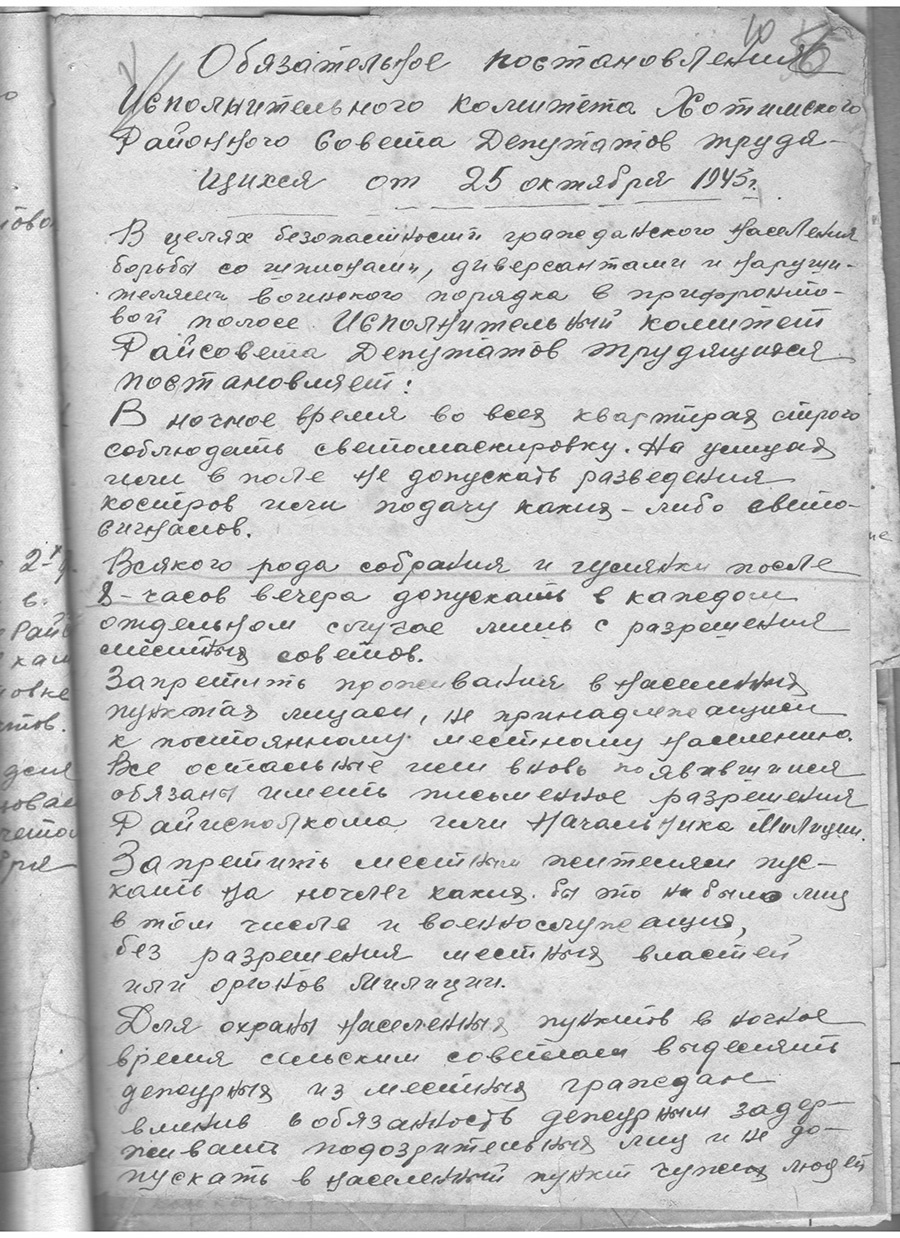 10
Обязательное постановления
Исполнительного комитета Хотимского
Районного Совета Депутатов трудя-
щихся от 25 октября 1945г.
В целях безопастности гражданского населения
борьбы со шпионами, диверсантами и наруши-
телями воинского порядка в прифронто-
вой полосе Исполнительный комитет
Райсовета Депутатов трудящихся
постановляет:
В ночное время во всех квартирах строго
соблюдать светомаскировку. На улицах
или в поле не допускать разведения
костров или подачу каких-либо свето-
сигналов.
Всякого рода собрания и гулянки после
8-часов вечера допускать в каждом
отдельном случае лишь с разрешения
местных советов.
Запретить проживания в населенных
пунктах лицам, не принадлежащим
к постоянному местному населению.
Все остальные или вновь появившиеся
обязаны иметь письменное разрешения
Райисполкома или Начальника Милиции.
Запретить местным жителям пус-
кать на ночлег каких бы то не было лиц
в том числе и военнослужащих,
без разрешения местных властей
или органов Милиции.
Для охраны населенных пунктов в ночное
время сельским советам выделять
дежурных из местных граждан
вменив в обязанность дежурным задер-
живать подозрительных лиц и не до-
пускать в населенный пункт чужих людей